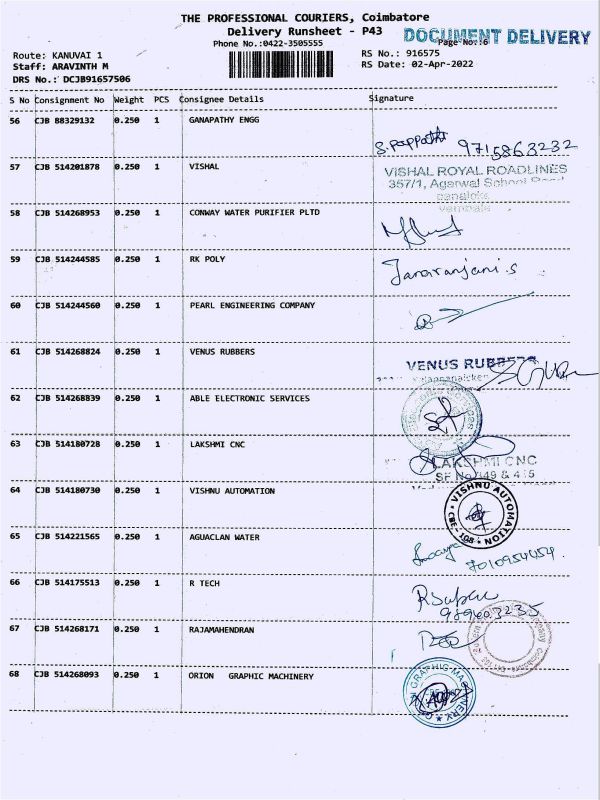 THE PROFESSIONAL COURIERS, Coimbatore
Delivery Runsheet - P43
DOCUMENT DELIVERY
Phone No.:0422-3505555
Page No.:6
Route: KANUVAI 1
RS No.: 916575
Staff: ARAVINTH M
RS Date: 02-Apr-2022
DRS No.: DCJB91657506
S No Consignment No Weight PCS Consignee Details Signature
56 CJB 88329132 0.250 1 GANAPATHY ENGG
S. Pappathi 9715863232
57 CJB 514201878 0.250 1 VISHAL
VISHAL ROYAL ROADLINES
357/1, Agarwal School Road
58 CJB 514268953 0.250 1 CONWAY WATER PURIFIER PLTD
59 CJB 514244585 0.250 1 RK POLY
Janaranjani.s
60 CJB 514244560 0.250 1 PEARL ENGINEERING COMPANY
61 CJB 514268824 0.250 1 VENUS RUBBERS
VENUS RUBBERS
62 CJB 514268839 0.250 1 ABLE ELECTRONIC SERVICES
63 CJB 514180728 0.250 1 LAKSHMI CNC
LAKSHMI CNC
SF No 449 & 415
64 CJB 514180730 0.250 1 VISHNU AUTOMATION
VISHNU AUTOMATION
CBE-108
65 CJB 514221565 0.250 1 AGUACLAN WATER
7010954454
66 CJB 514175513 0.250 1 R TECH
67 CJB 514268171 0.250 1 RAJAMAHENDRAN
68 CJB 514268093 0.250 1 ORION GRAPHIC MACHINERY
GRAPHIC MACHINERY